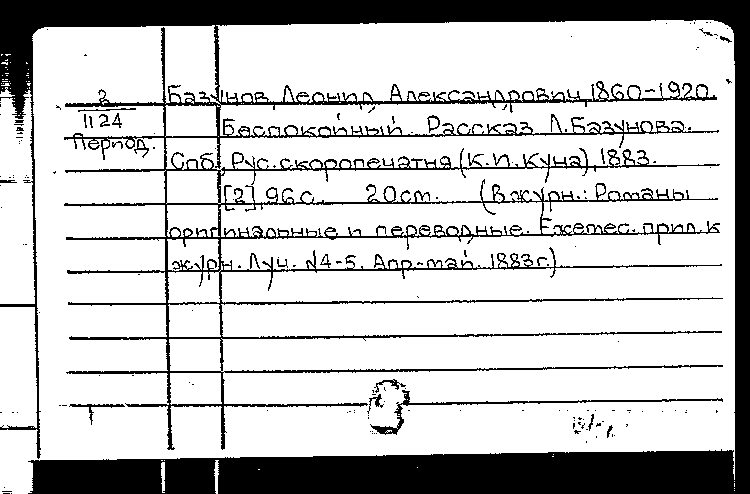 2
1124
Период.
Базунов, Леонид Александрович, 1860-1920.
Беспокойный. Рассказ Л. Базунова.
Спб., Рус. скоропечатня (К.П. Куна), 1883.
[2], 96 с. 20 ст. (В журн.: Романы
оригинальные и переводные. Ежемес. прил. к
журн. Луч. №4-5. Апр.-май. 1883г.)